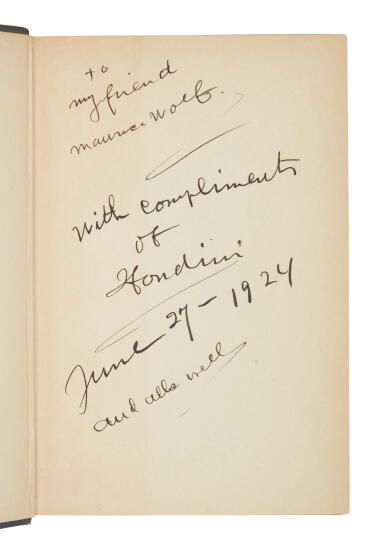 to
my friend
Maurice Wolf.
with compliments
of
Houdini
June 27 - 1924
and alls well